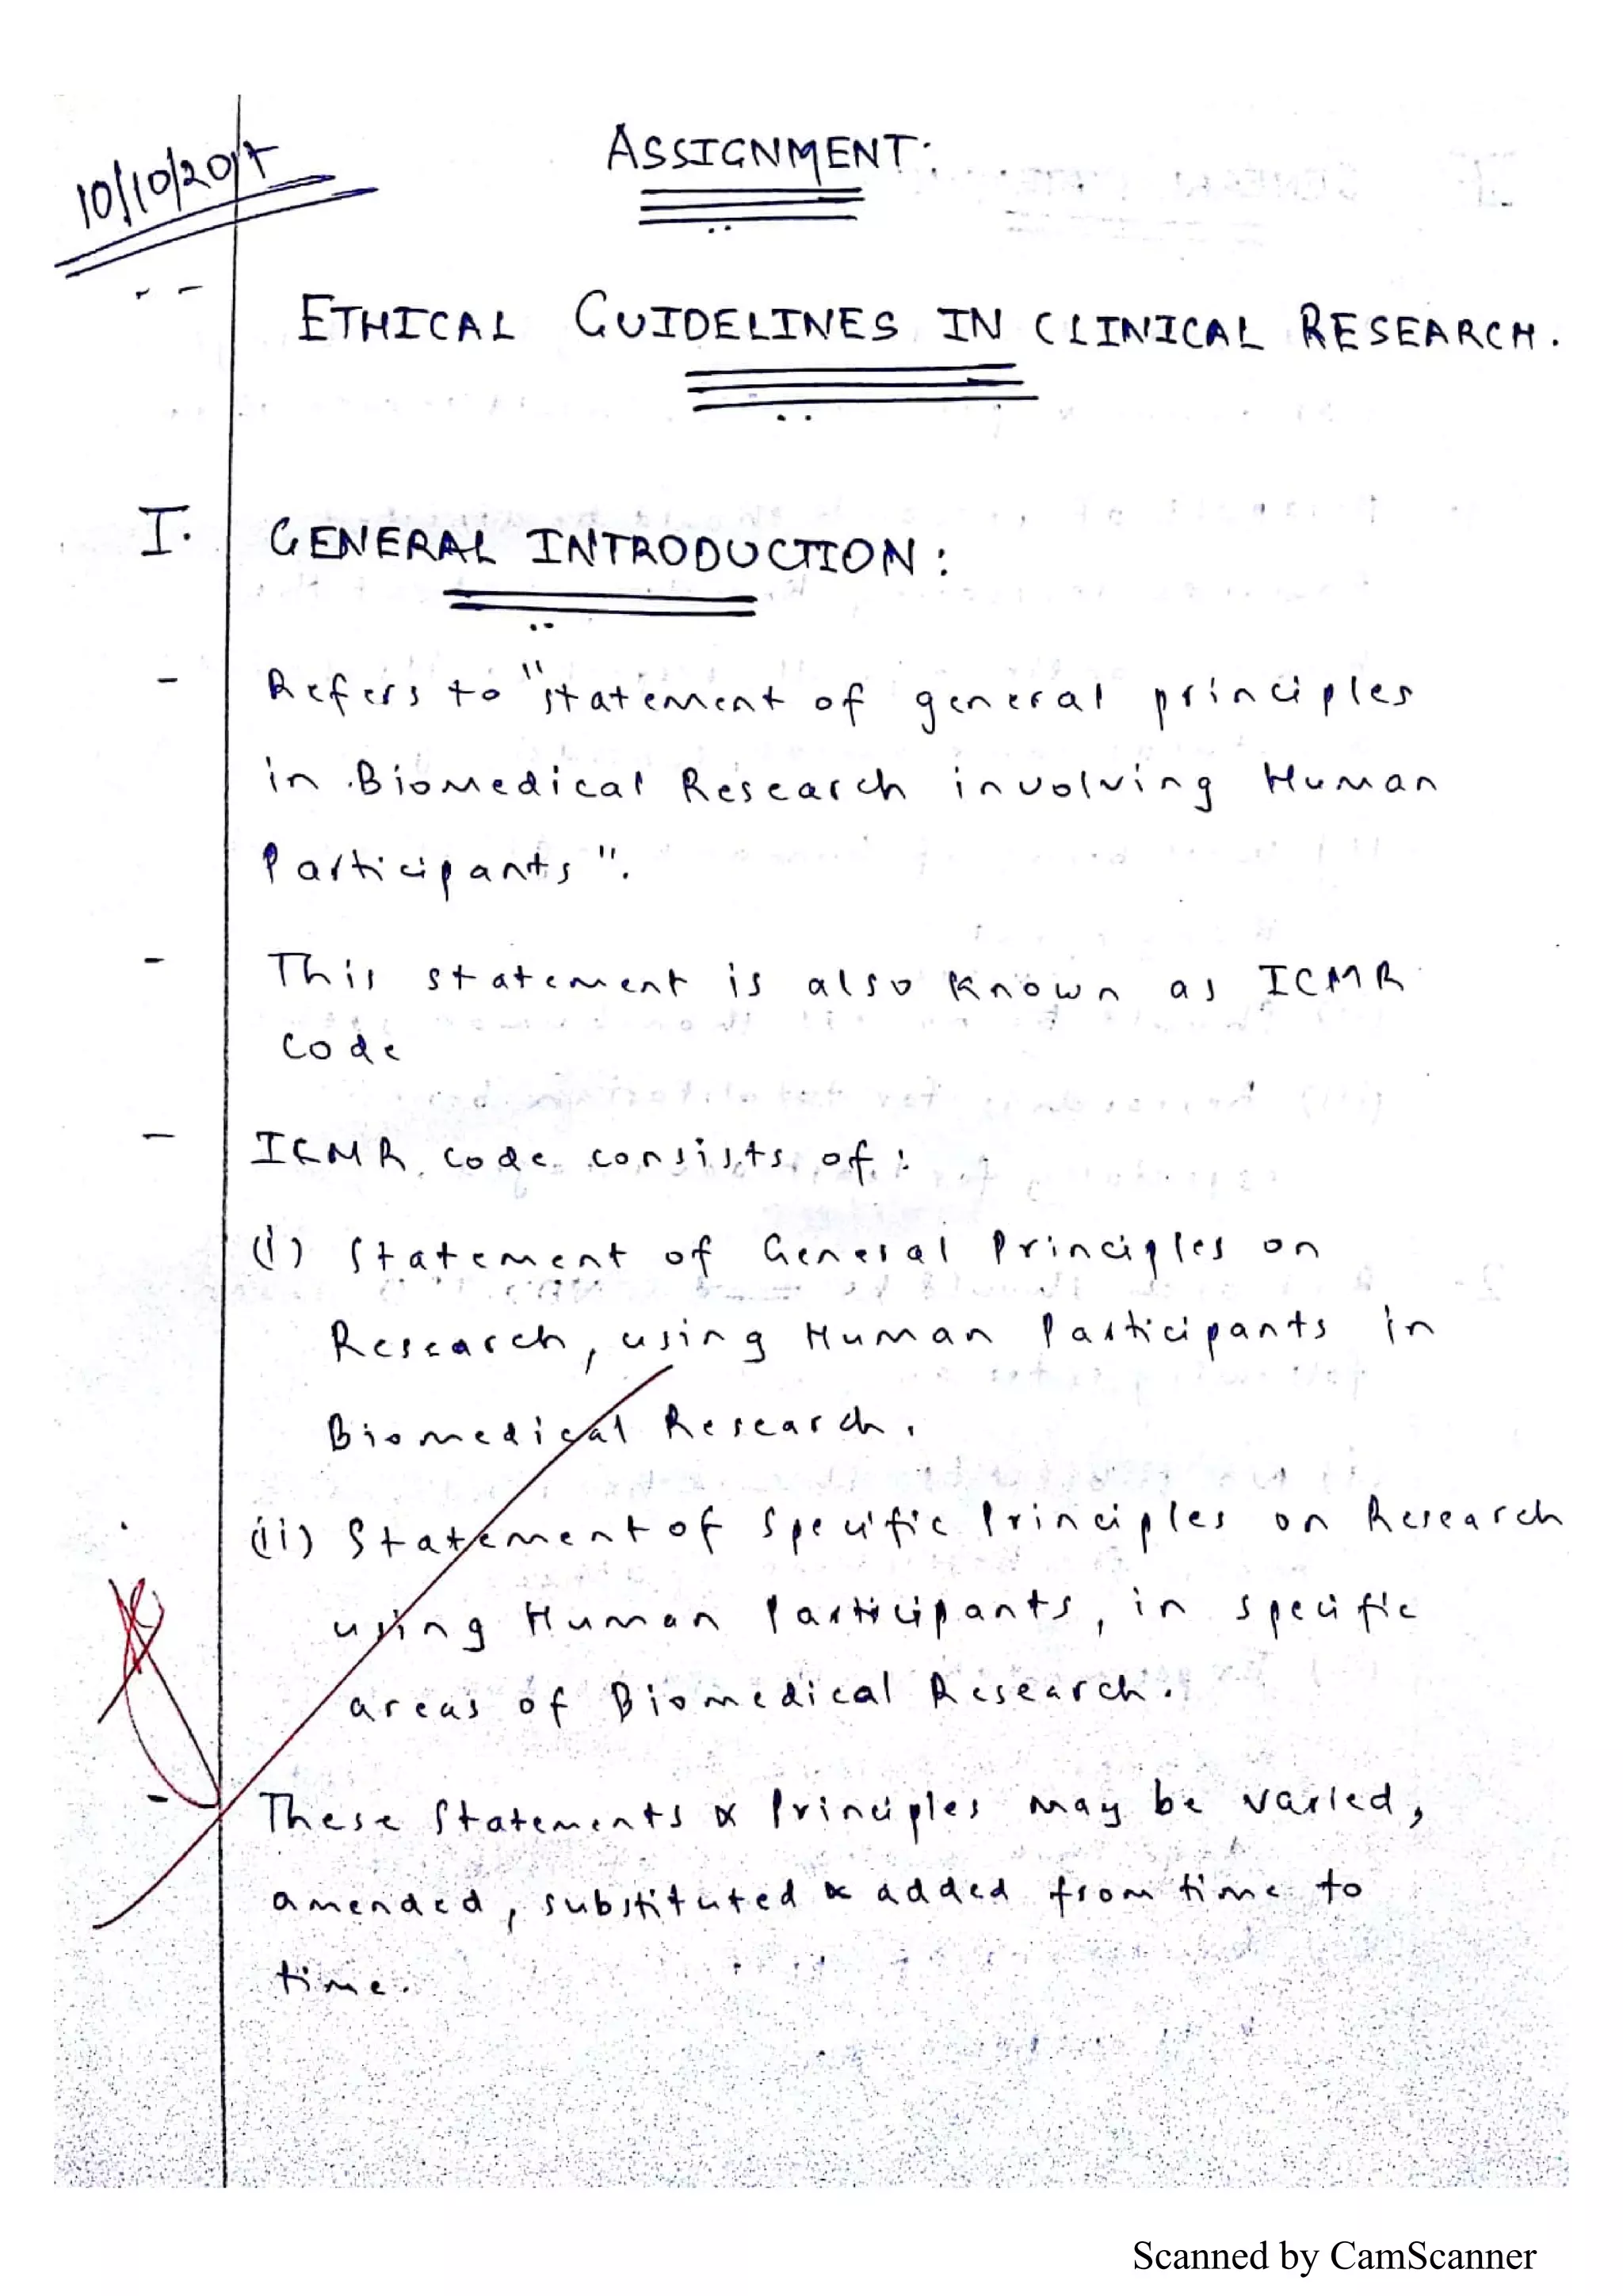 10/10/2017
ASSIGNMENT:
ETHICAL GUIDELINES IN CLINICAL RESEARCH.
I. GENERAL INTRODUCTION:
- Refers to "statement of general principles
in Biomedical Research involving Human
Participants".
- This statement is also known as ICMR
Code
- ICMR code consists of:
(i) Statement of General Principles on
Research, using Human Participants in
Biomedical Research.
(ii) Statement of Specific Principles on Research
using Human Participants, in specific
areas of Biomedical Research.
- These Statements & Principles may be varied,
amended, substituted & added from time to
time.
Scanned by CamScanner